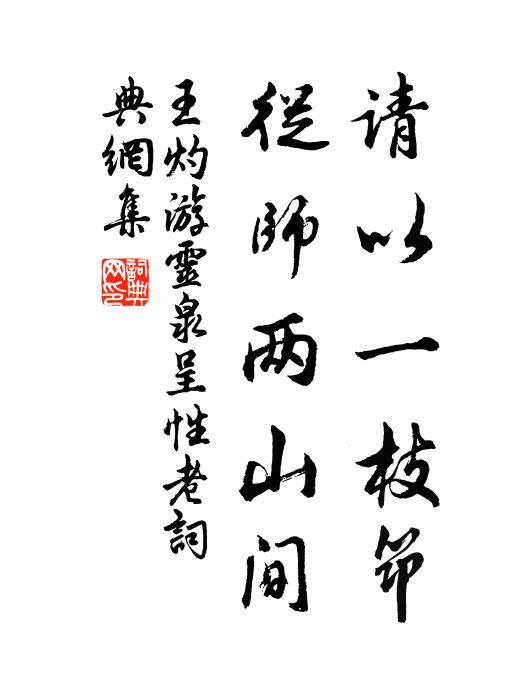 请以一枝笻
從師两山间
王灼游靈泉呈性老詞
典網集
詞典
网印